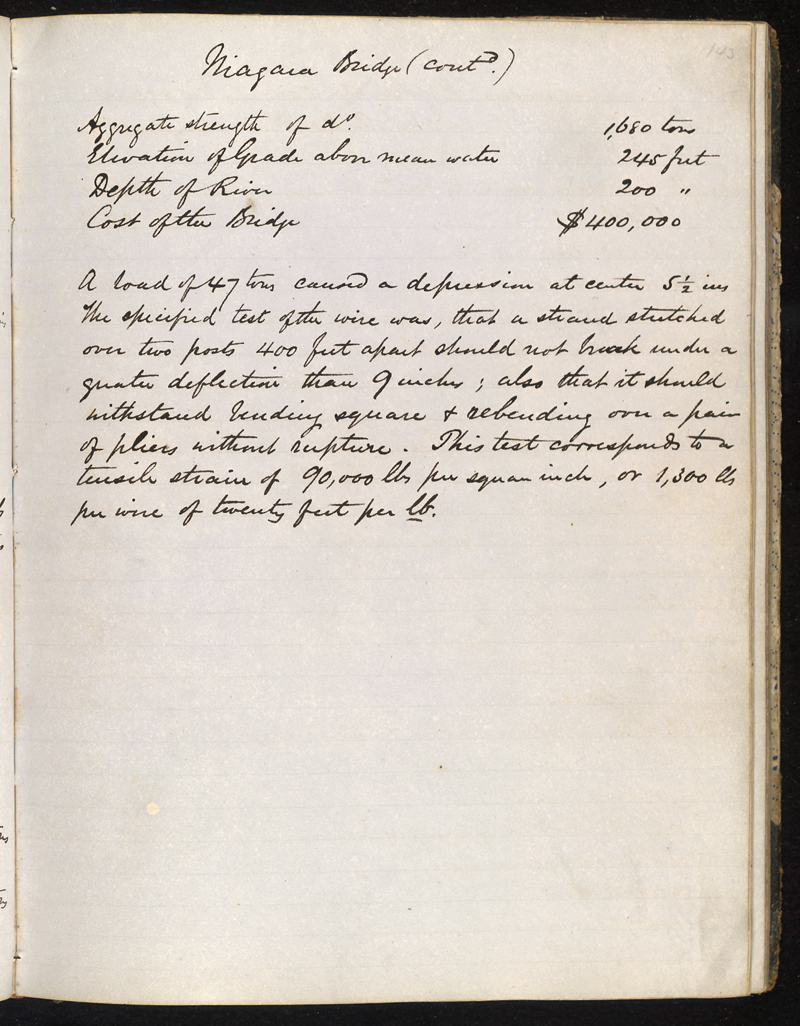 143
Niagara Bridge (contd.)
Aggregate strength of do. 1,680 tons
Elevation of Grade above mean water 245 feet
Depth of River 200 "
Cost of the Bridge $400,000
A load of 47 tons caused a depression at center 5½ ins
The specified test of the wire was, that a strand stretched
over two posts 400 feet apart should not break under a
greater deflection than 9 inches; also that it should
withstand bending square & rebending over a pair
of pliers without rupture. This test corresponds to a
tensile strain of 90,000 lbs per square inch, or 1,300 lbs
per wire of twenty feet per lb.